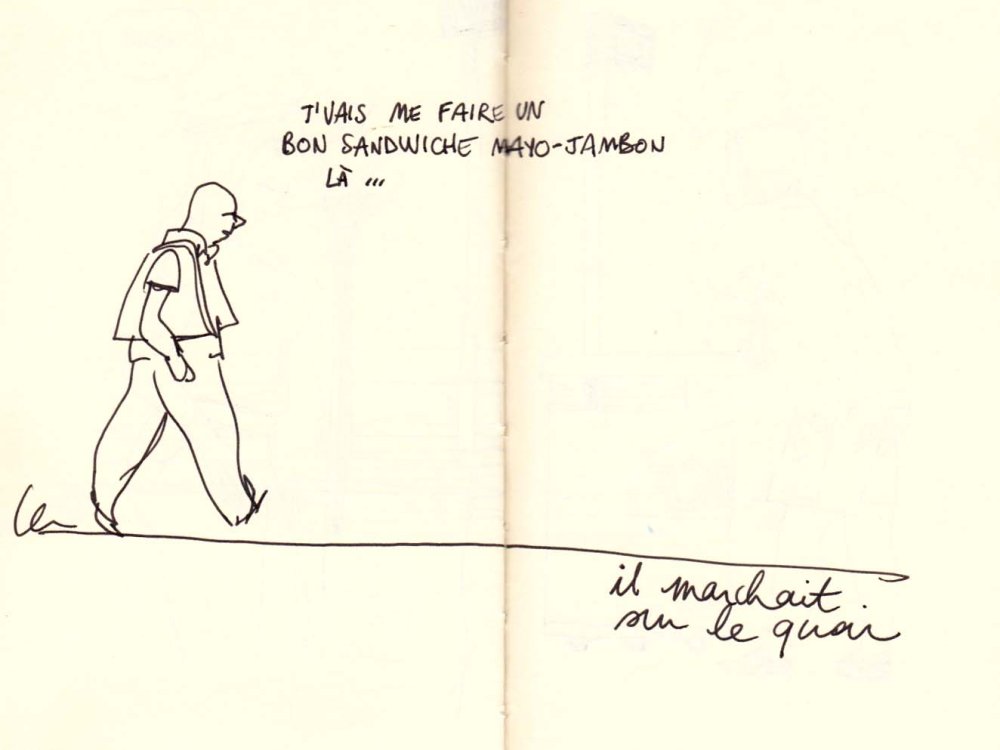 J'VAIS ME FAIRE UN
BON SANDWICHE MAYO-JAMBON
LÀ ...
il marchait
sur le quai